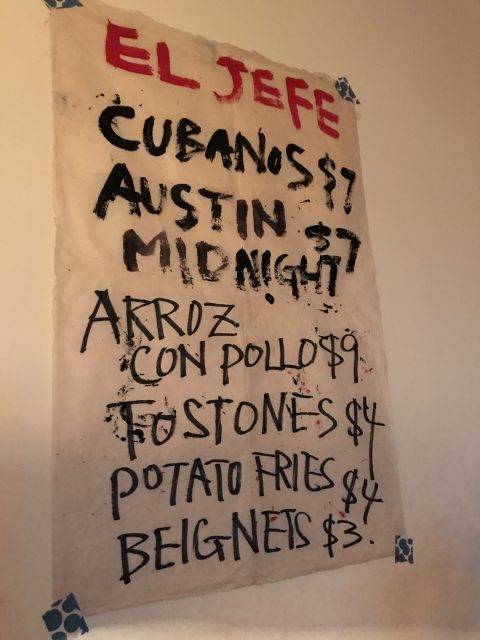 EL JEFE
CUBANOS $7
AUSTIN
MIDNIGHT $7
ARROZ
CON POLLO $9
TOSTONES $4
POTATO FRIES $4
BEIGNETS $3.